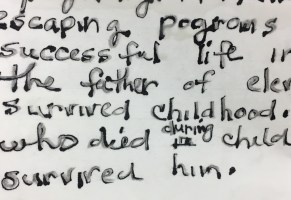 escaping pogroms
successful life in
the father of elev
survived childhood.
who died during child
survived him.